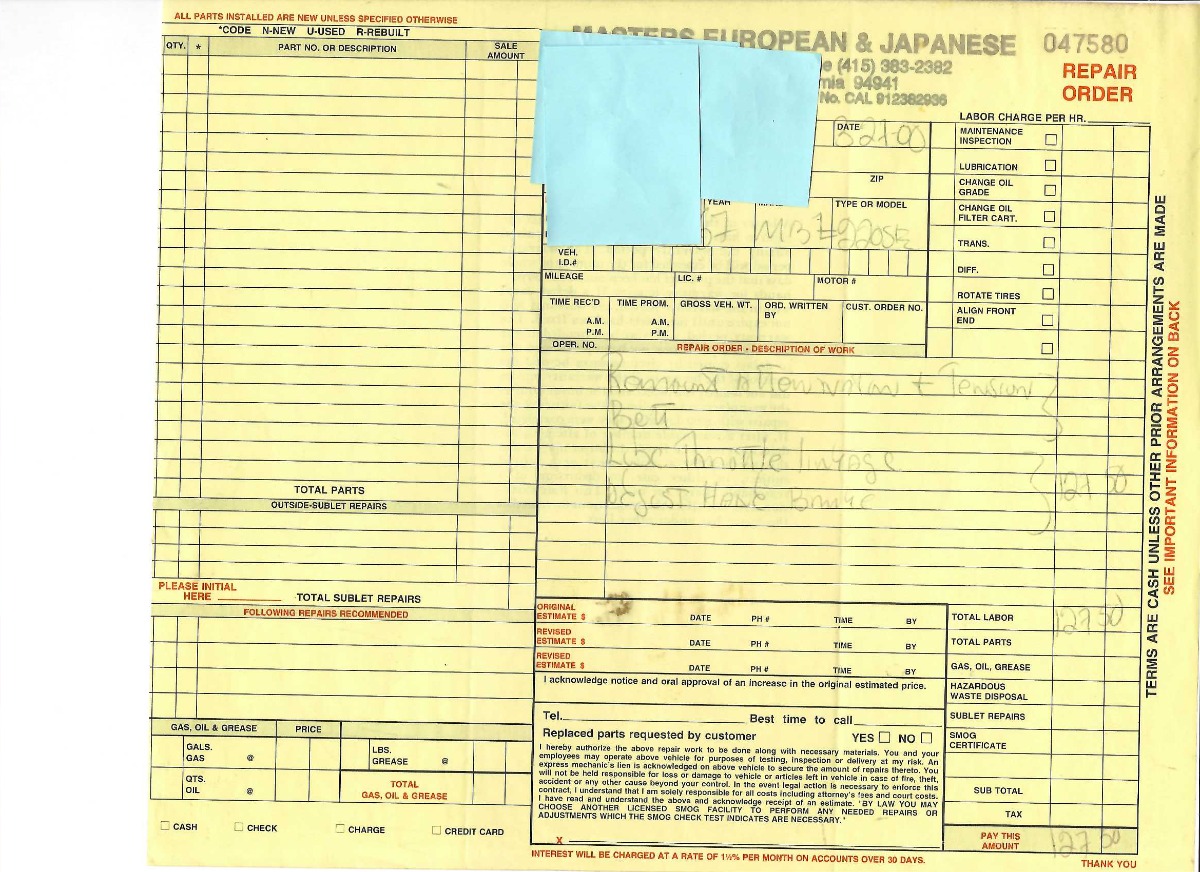 ALL PARTS INSTALLED ARE NEW UNLESS SPECIFIED OTHERWISE
*CODE N-NEW U-USED R-REBUILT
QTY. * PART NO. OR DESCRIPTION SALE AMOUNT
TOTAL PARTS
OUTSIDE-SUBLET REPAIRS
PLEASE INITIAL
HERE TOTAL SUBLET REPAIRS
FOLLOWING REPAIRS RECOMMENDED
GAS, OIL & GREASE PRICE
GALS. GAS @ LBS. GREASE @
QTS. OIL @ TOTAL GAS, OIL & GREASE
CASH CHECK CHARGE CREDIT CARD
MASTERS EUROPEAN & JAPANESE 047580
(415) 383-2382
94941
No. CAL 912382936
REPAIR
ORDER
LABOR CHARGE PER HR.
DATE 3 27-00
ZIP
YEAR TYPE OR MODEL
67 MBZ 220SE
VEH. I.D.#
MILEAGE LIC. # MOTOR #
TIME REC'D TIME PROM. GROSS VEH. WT. ORD. WRITTEN BY CUST. ORDER NO.
A.M. A.M.
P.M. P.M.
OPER. NO. REPAIR ORDER - DESCRIPTION OF WORK
MAINTENANCE INSPECTION
LUBRICATION
CHANGE OIL GRADE
CHANGE OIL FILTER CART.
TRANS.
DIFF.
ROTATE TIRES
ALIGN FRONT END
Remount & Tension
Belt
Lube Throttle
127 50
ORIGINAL ESTIMATE $ DATE PH # TIME BY
REVISED ESTIMATE $ DATE PH # TIME BY
REVISED ESTIMATE $ DATE PH # TIME BY
I acknowledge notice and oral approval of an increase in the original estimated price.
Tel. Best time to call
Replaced parts requested by customer YES NO
I hereby authorize the above repair work to be done along with necessary materials. You and your
employees may operate above vehicle for purposes of testing, inspection or delivery at my risk. An
express mechanic's lien is acknowledged on above vehicle to secure the amount of repairs thereto. You
will not be held responsible for loss or damage to vehicle or articles left in vehicle in case of fire, theft,
accident or any other cause beyond your control. In the event legal action is necessary to enforce this
contract, I understand that I am solely responsible for all costs including attorney's fees and court costs.
I have read and understand the above and acknowledge receipt of an estimate. "BY LAW YOU MAY
CHOOSE ANOTHER LICENSED SMOG FACILITY TO PERFORM ANY NEEDED REPAIRS OR
ADJUSTMENTS WHICH THE SMOG CHECK TEST INDICATES ARE NECESSARY."
X
INTEREST WILL BE CHARGED AT A RATE OF 1½% PER MONTH ON ACCOUNTS OVER 30 DAYS.
TOTAL LABOR 127 50
TOTAL PARTS
GAS, OIL, GREASE
HAZARDOUS WASTE DISPOSAL
SUBLET REPAIRS
SMOG CERTIFICATE
SUB TOTAL
TAX
PAY THIS AMOUNT 127 50
THANK YOU
TERMS ARE CASH UNLESS OTHER PRIOR ARRANGEMENTS ARE MADE
SEE IMPORTANT INFORMATION ON BACK